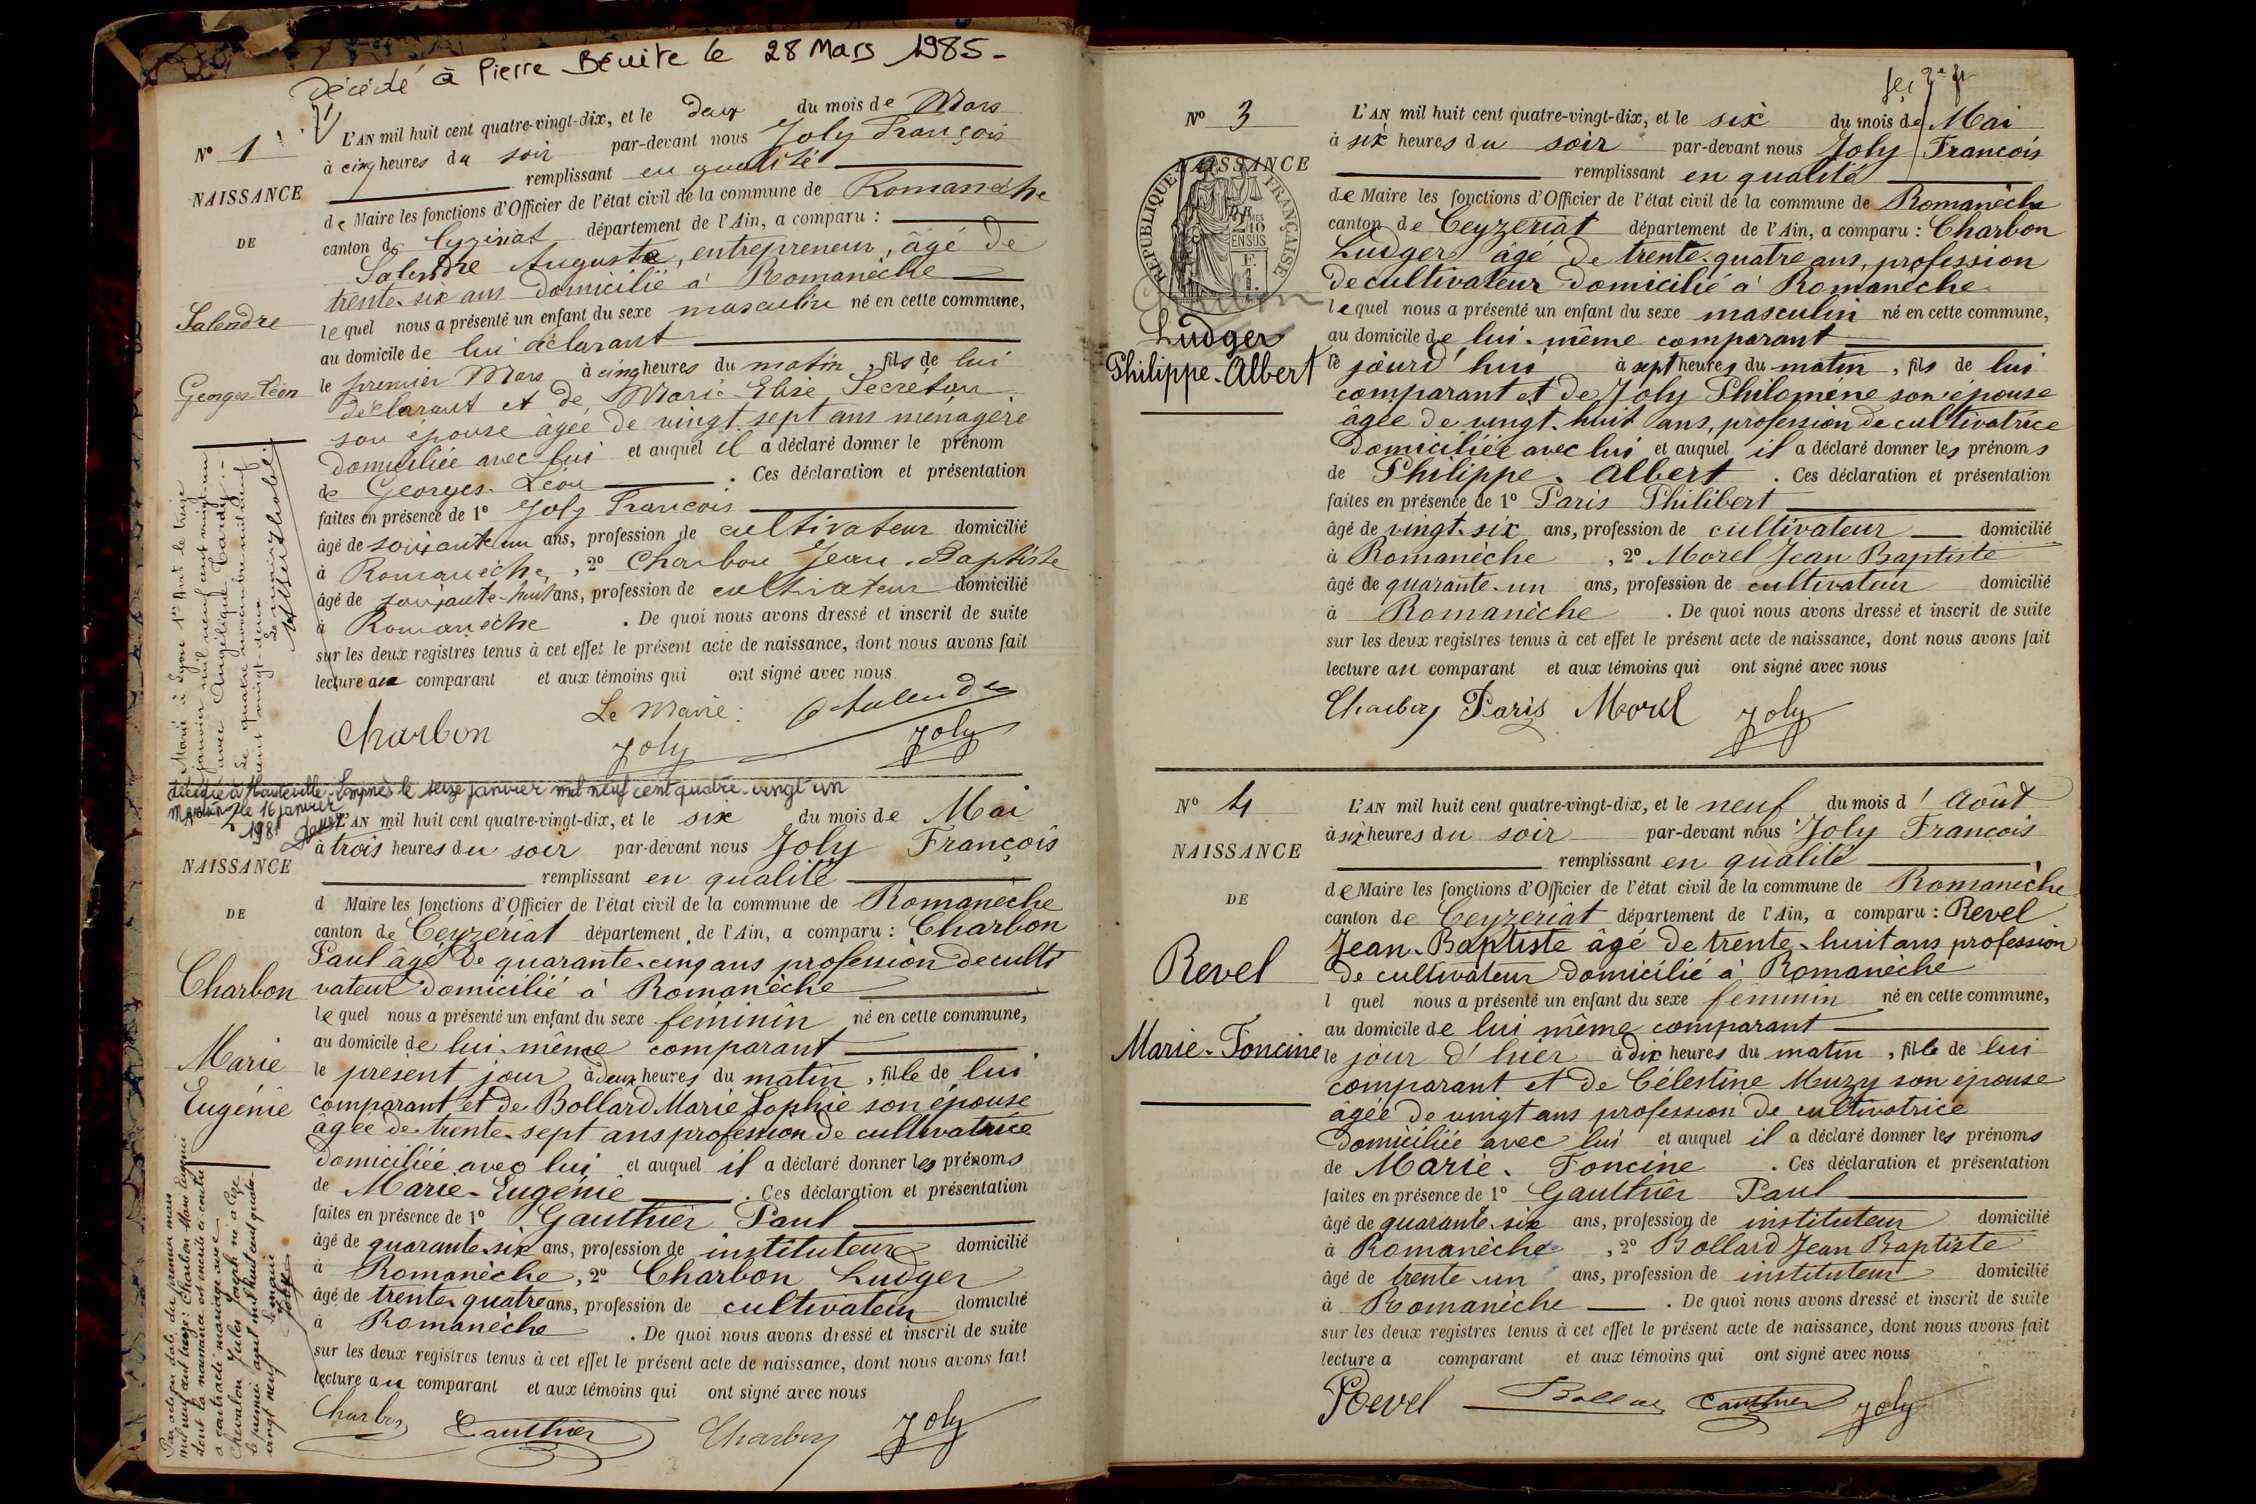 Décédé à Pierre Bénite le 28 Mars 1985 -
N° 1
NAISSANCE
DE
Salendre
Georges Léon
L'AN mil huit cent quatre-vingt-dix, et le deux du mois de Mars
à cinq heures du soir par-devant nous Joly François
remplissant en qualité
de Maire les fonctions d'Officier de l'état civil de la commune de Romanèche
canton de Ceyzériat département de l'Ain, a comparu :
Salendre Auguste, entrepreneur, âgé de
trente-six ans domicilié à Romanèche
lequel nous a présenté un enfant du sexe masculin né en cette commune,
au domicile de lui déclarant
le premier Mars à cinq heures du matin, fils de lui
déclarant et de Marie Elise Secrétan
son épouse âgée de vingt sept ans ménagère
domiciliée avec lui et auquel il a déclaré donner le prénom
de Georges-Léon . Ces déclaration et présentation
faites en présence de 1° Joly François
âgé de soixante un ans, profession de cultivateur domicilié
à Romanèche, 2° Charbon Jean-Baptiste
âgé de soixante-huit ans, profession de cultivateur domicilié
à Romanèche . De quoi nous avons dressé et inscrit de suite
sur les deux registres tenus à cet effet le présent acte de naissance, dont nous avons fait
lecture au comparant et aux témoins qui ont signé avec nous
Le Maire :
Charbon Joly Joly
Marié à Lyon 1er Arrt le treize
janvier mil neuf cent vingt-un
avec Angélique Tardy
décédée à Hauteville-Lompnès le seize janvier mil neuf cent quatre-vingt un
le 16 janvier
1981
NAISSANCE
DE
Charbon
Marie
Eugénie
L'AN mil huit cent quatre-vingt-dix, et le six du mois de Mai
à trois heures du soir par-devant nous Joly François
remplissant en qualité
d Maire les fonctions d'Officier de l'état civil de la commune de Romanèche
canton de Ceyzériat département de l'Ain, a comparu : Charbon
Paul âgé de quarante-cinq ans profession de culti
vateur domicilié à Romanèche
lequel nous a présenté un enfant du sexe féminin né en cette commune,
au domicile de lui-même comparant
le présent jour à deux heures du matin, fille de lui
comparant et de Bollard Marie Sophie son épouse
âgée de trente-sept ans profession de cultivatrice
domiciliée avec lui et auquel il a déclaré donner les prénoms
de Marie-Eugénie . Ces déclaration et présentation
faites en présence de 1° Gauthier Paul
âgé de quarante-six ans, profession de instituteur domicilié
à Romanèche, 2° Charbon Ludger
âgé de trente-quatre ans, profession de cultivateur domicilié
à Romanèche . De quoi nous avons dressé et inscrit de suite
sur les deux registres tenus à cet effet le présent acte de naissance, dont nous avons fait
lecture au comparant et aux témoins qui ont signé avec nous
Charbon Gauthier Charbon Joly
Par acte en date du premier mars
mil neuf cent treize : Charbon Marie Eugénie
dont la naissance est inscrite ci-contre
a contracté mariage avec
Chevalon Jules Joseph né à
le premier août mil huit cent quatre-
vingt neuf
Le maire
N° 3
NAISSANCE
RÉPUBLIQUE FRANÇAISE
Ludger
Philippe-Albert
L'AN mil huit cent quatre-vingt-dix, et le six du mois de Mai
à six heures du soir par-devant nous Joly François
remplissant en qualité
de Maire les fonctions d'Officier de l'état civil de la commune de Romanèche
canton de Ceyzeriat département de l'Ain, a comparu : Charbon
Ludger âgé de trente-quatre ans, profession
de cultivateur domicilié à Romanèche
lequel nous a présenté un enfant du sexe masculin né en cette commune,
au domicile de lui-même comparant
le jourd'hui à sept heures du matin, fils de lui
comparant et de Joly Philomène son épouse
âgée de vingt-huit ans, profession de cultivatrice
domiciliée avec lui et auquel il a déclaré donner les prénoms
de Philippe-Albert . Ces déclaration et présentation
faites en présence de 1° Paris Philibert
âgé de vingt-six ans, profession de cultivateur domicilié
à Romanèche, 2° Morel Jean Baptiste
âgé de quarante-un ans, profession de cultivateur domicilié
à Romanèche . De quoi nous avons dressé et inscrit de suite
sur les deux registres tenus à cet effet le présent acte de naissance, dont nous avons fait
lecture au comparant et aux témoins qui ont signé avec nous
Charbon Paris Morel Joly
N° 4
NAISSANCE
DE
Revel
Marie-Foncine
L'AN mil huit cent quatre-vingt-dix, et le neuf du mois d'Août
à six heures du soir par-devant nous Joly François
remplissant en qualité
de Maire les fonctions d'Officier de l'état civil de la commune de Romanèche
canton de Ceyzeriat département de l'Ain, a comparu : Revel
Jean-Baptiste âgé de trente-huit ans profession
de cultivateur domicilié à Romanèche
l quel nous a présenté un enfant du sexe féminin né en cette commune,
au domicile de lui même comparant
le jour d'hier à dix heures du matin, fille de lui
comparant et de Célestine Muzy son épouse
âgée de vingt ans profession de cultivatrice
domiciliée avec lui et auquel il a déclaré donner les prénoms
de Marie-Foncine . Ces déclaration et présentation
faites en présence de 1° Gauthier Paul
âgé de quarante-six ans, profession de instituteur domicilié
à Romanèche, 2° Bollard Jean Baptiste
âgé de trente-un ans, profession de instituteur domicilié
à Romanèche . De quoi nous avons dressé et inscrit de suite
sur les deux registres tenus à cet effet le présent acte de naissance, dont nous avons fait
lecture a comparant et aux témoins qui ont signé avec nous
Revel Bollard Gauthier Joly